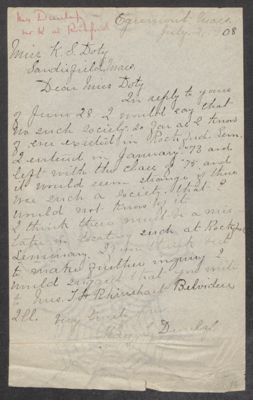 Mrs Dunlap
Egremont Mass.
July 2, 1908
Miss K. S. Doty
Sandisfield, Mass
Dear Miss Doty
In reply to yours
of June 28 I would say that
no such society so far as I know
of ever existed in Rockford Sem.
I entered in January '73 and
left with the class of '75 and
it would seem strange if there
was such a society that I
would not know of it.
I think there must be a mis-
take in locating such at Rockford
Seminary. If you think best
to make further inquiry I
would suggest that you write
to Mrs. T. H. Rhinehart Belvidere
Ill. Very truly yours
Mary Dunlap